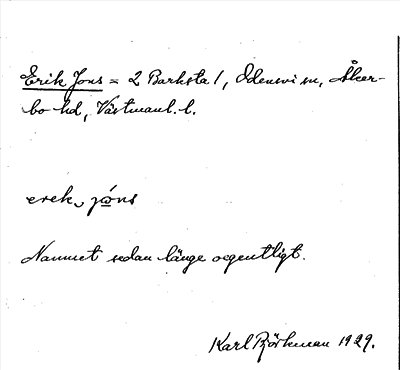 Erik Jons = 2 Barksta 1, Odensvi sn, Åker-
bo hd, Västmanl. l.
erek, jóns
Namnet sedan länge oegentligt.
Karl Björkman 1929.